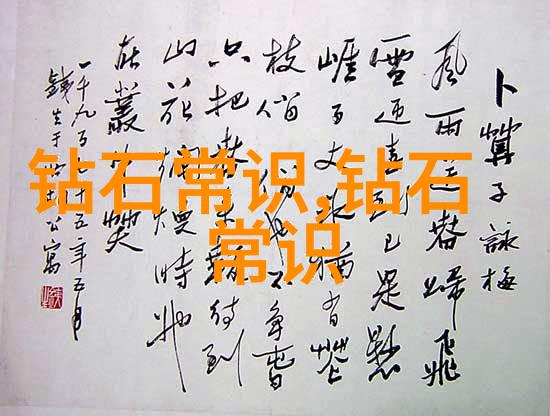 钻石常识,钻石
常识
卜算子 詠梅
風雨送春歸飛
雪迎春到已是懸
崖百丈冰猶有花
枝俏俏也不爭春
只把春來報待到
山花爛熳時她
在叢中笑
一千九百七十五年五月
公寓